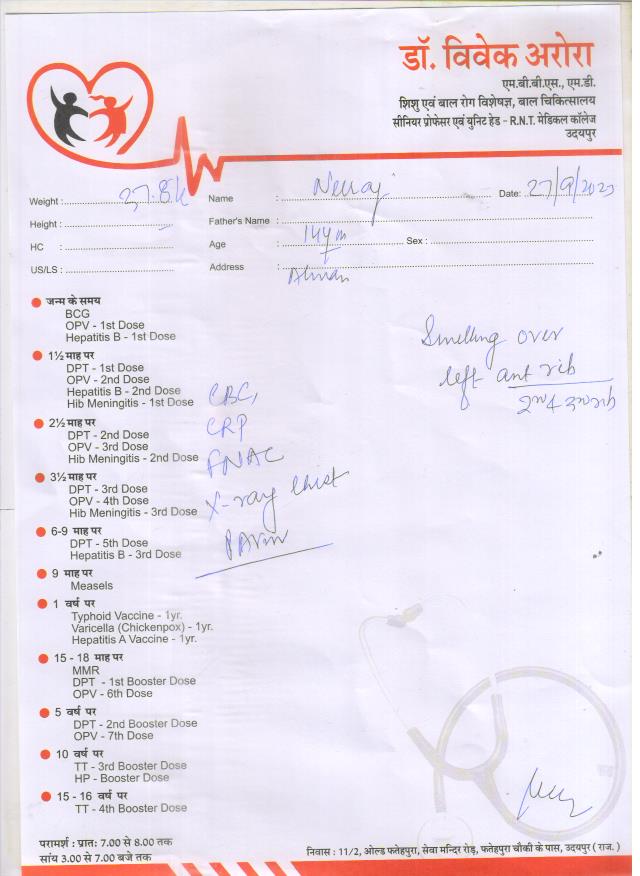 डॉ. विवेक अरोरा
एम.बी.बी.एस., एम.डी.
शिशु एवं बाल रोग विशेषज्ञ, बाल चिकित्सालय
सीनियर प्रोफेसर एवं युनिट हेड - R.N.T. मेडिकल कॉलेज
उदयपुर
Weight : 37.8k Name : Neeraj Date: 27/9/2023
Height : Father's Name :
HC : Age : 14y m Sex :
US/LS : Address :
Swelling over
left ant rib
2nd & 3rd rib
जन्म के समय
BCG
OPV - 1st Dose
Hepatitis B - 1st Dose
1½ माह पर
DPT - 1st Dose
OPV - 2nd Dose
Hepatitis B - 2nd Dose
Hib Meningitis - 1st Dose
CBC,
2½ माह पर
DPT - 2nd Dose
OPV - 3rd Dose
Hib Meningitis - 2nd Dose
CRP
FNAC
3½ माह पर
DPT - 3rd Dose
OPV - 4th Dose
Hib Meningitis - 3rd Dose
X-ray Chest
6-9 माह पर
DPT - 5th Dose
Hepatitis B - 3rd Dose
9 माह पर
Measels
1 वर्ष पर
Typhoid Vaccine - 1yr.
Varicella (Chickenpox) - 1yr.
Hepatitis A Vaccine - 1yr.
15 - 18 माह पर
MMR
DPT - 1st Booster Dose
OPV - 6th Dose
5 वर्ष पर
DPT - 2nd Booster Dose
OPV - 7th Dose
10 वर्ष पर
TT - 3rd Booster Dose
HP - Booster Dose
15 - 16 वर्ष पर
TT - 4th Booster Dose
परामर्श : प्रात: 7.00 से 8.00 तक
सांय 3.00 से 7.00 बजे तक
निवास : 11/2, ओल्ड फतेहपुरा, सेवा मन्दिर रोड़, फतेहपुरा चौकी के पास, उदयपुर ( राज. )